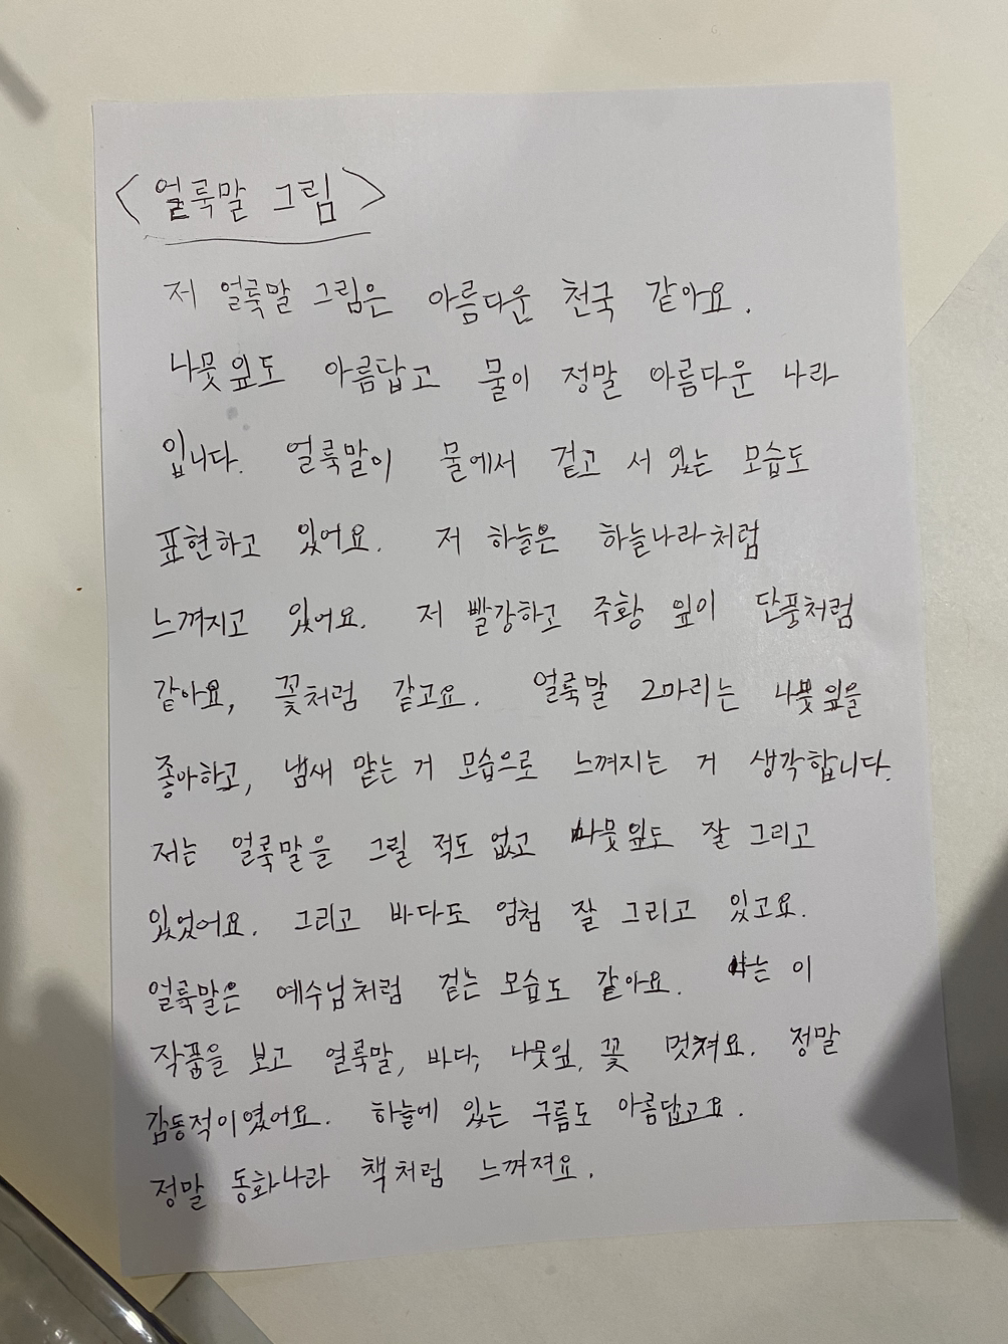 <얼룩말 그림>
저 얼룩말 그림은 아름다운 천국 같아요.
나뭇잎도 아름답고 물이 정말 아름다운 나라
입니다. 얼룩말이 물에서 겉고 서 있는 모습도
표현하고 있어요. 저 하늘은 하늘나라처럼
느껴지고 있어요. 저 빨강하고 주황 잎이 단풍처럼
같아요, 꽃처럼 같고요. 얼룩말 2마리는 나뭇잎을
좋아하고, 냄새 맡는 거 모습으로 느껴지는 거 생각합니다.
저는 얼룩말을 그릴 적도 없고 나뭇잎도 잘 그리고
있었어요. 그리고 바다도 엄첨 잘 그리고 있고요.
얼룩말은 예수님처럼 겉는 모습도 같아요. 나는 이
작품을 보고 얼룩말, 바다, 나뭇잎, 꽃 멋쳐요. 정말
감동적이였어요. 하늘에 있는 구름도 아름답고요.
정말 동화나라 책처럼 느껴져요.